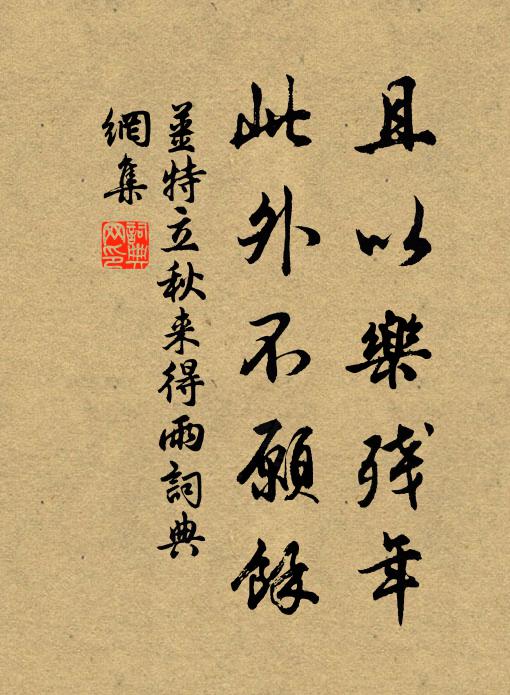 且以樂残年
此外不願餘
姜特立秋来得雨詞典
網集
詞典
网印